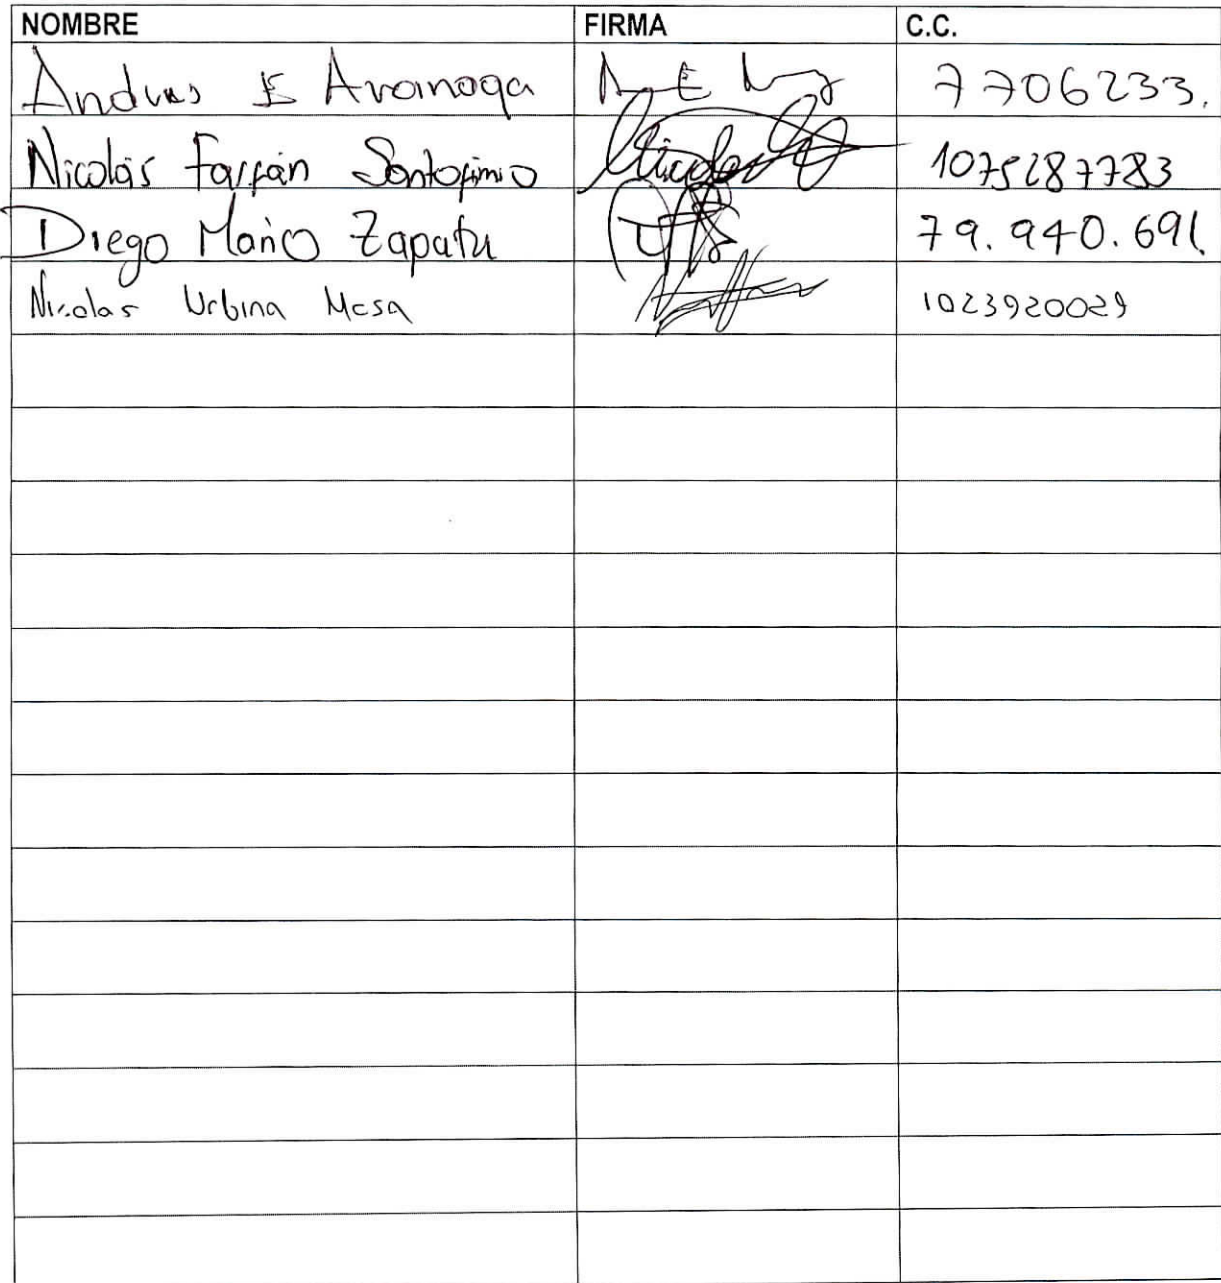 NOMBRE FIRMA C.C.
Andres E Aranoga 7706233.
Nicolás Farfán Santofimio 1075287783
Diego Mario Zapata 79.940.691
Nicolas Urbina Mesa 1023920029